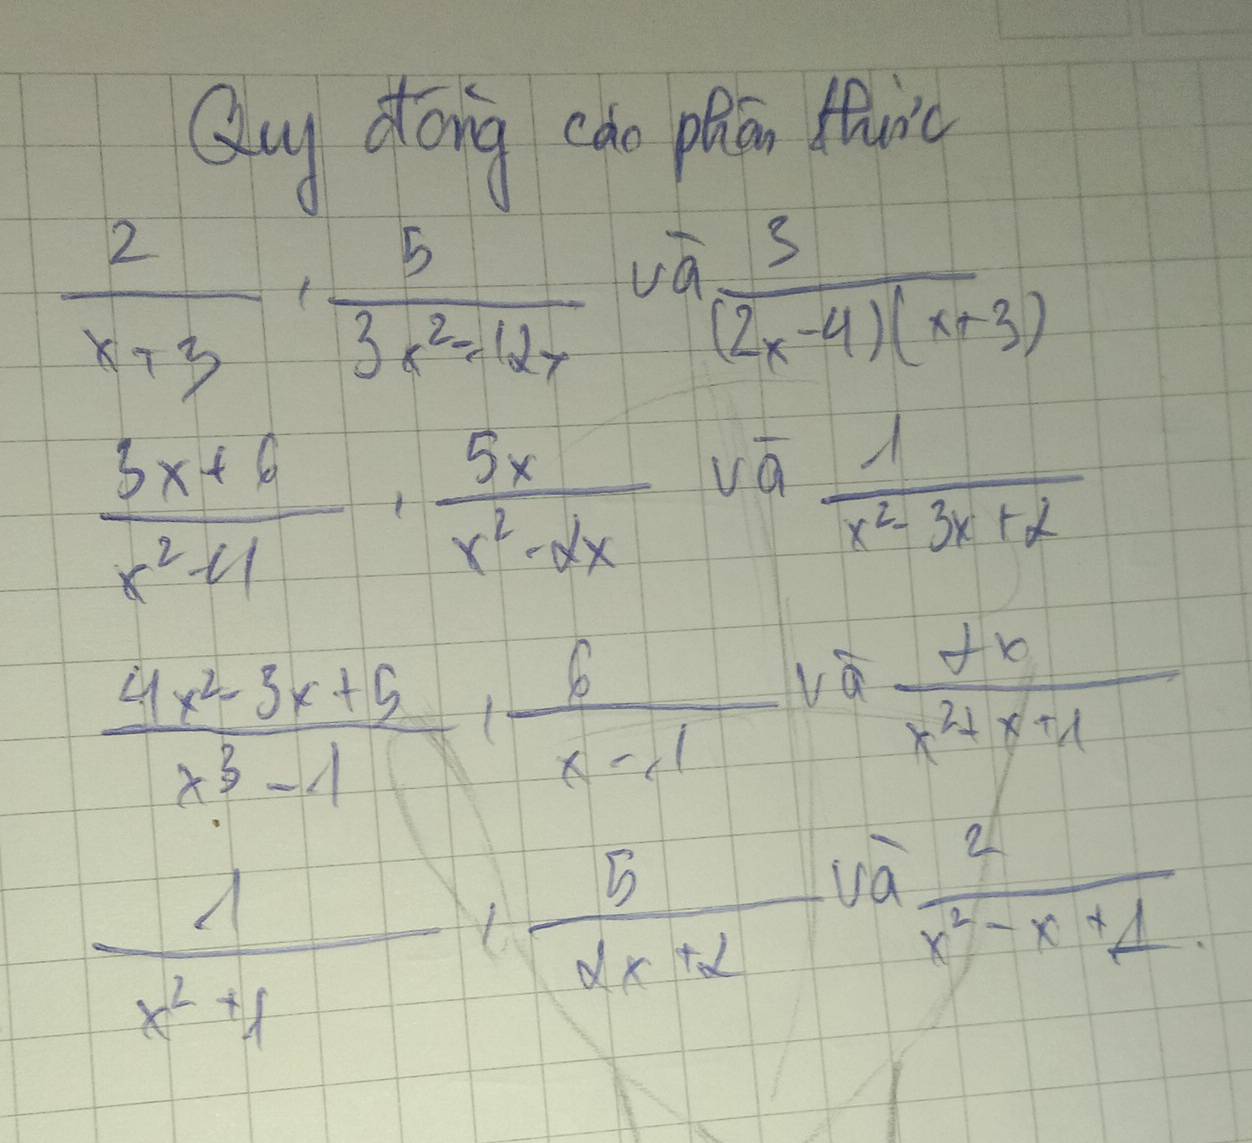 Quy đồng các phân thức
2/(x+3) , 5/(3x²-12x) và 3/((2x-4)(x+3))
(3x+6)/(x²-4) , 5x/(x²-2x) và 1/(x²-3x+2)
(4x²-3x+5)/(x³-1) , 6/(x-1) và x/(x²+x+1)
1/(x²+1) , 5/(2x+2) và 2/(x²-x+1).